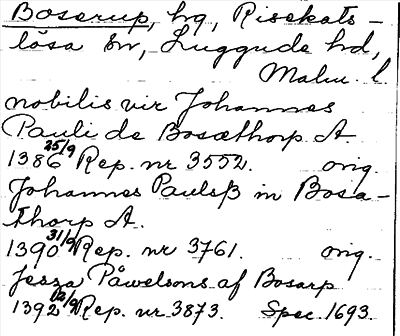 Boserup, hg, Risekats-
lösa sn, Luggude hd,
Malm. l.
nobilis vir Johannes
Pauli de Bosæthorp A.
1386 25/9 Rep. nr 3552. orig.
Johannes Paulsß in Bosa-
thorp A.
1390 31/9 Rep. nr 3761. orig.
Jessa Påwelsons af Bosarp
1392 12/9 Rep. nr 3873. Spec. 1693.